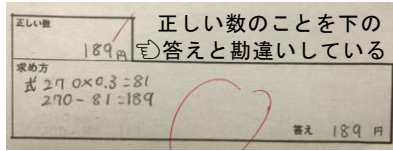 正しい数
正しい数のことを下の
189円
☜答えと勘違いしている
求め方
式 270×0.3=81
270-81=189
答え 189 円